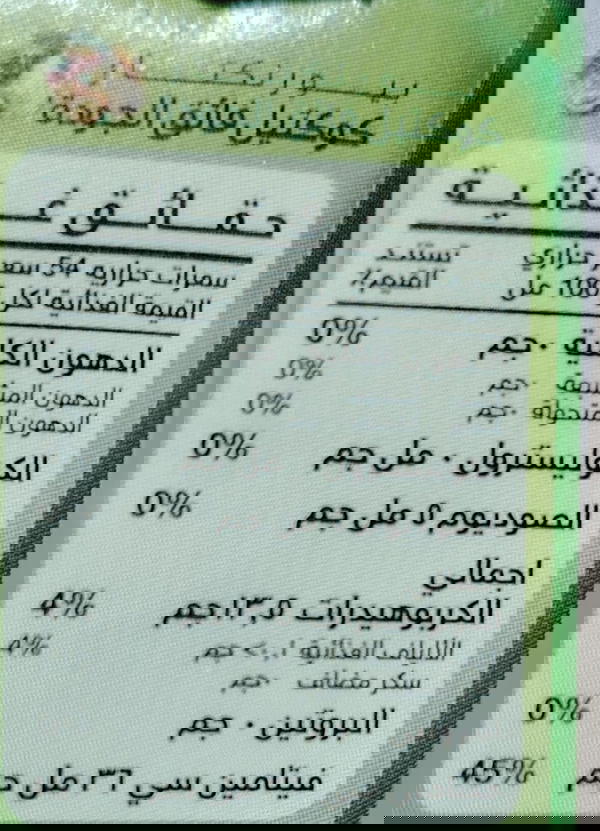 بيور نكتـ
كوكتيل فائق الجودة
حقائق غذائية
سعرات حرارية 54 سعر حراري
القيمة الغذائية لكل 100 مل
تستند
القيم٪
الدهون الكلية ٠ جم 0%
الدهون المشبعة ٠ جم 0%
الدهون المتحولة ٠ جم 0%
الكوليسترول ٠ مل جم 0%
الصوديوم ٥ مل جم 0%
اجمالي
الكربوهيدرات ١٣,٥ جم 4%
الألياف الغذائية جم 4%
سكر مضاف ٠ جم
البروتين ٠ جم 0%
فيتامين سي ٣٦ مل جم 45%